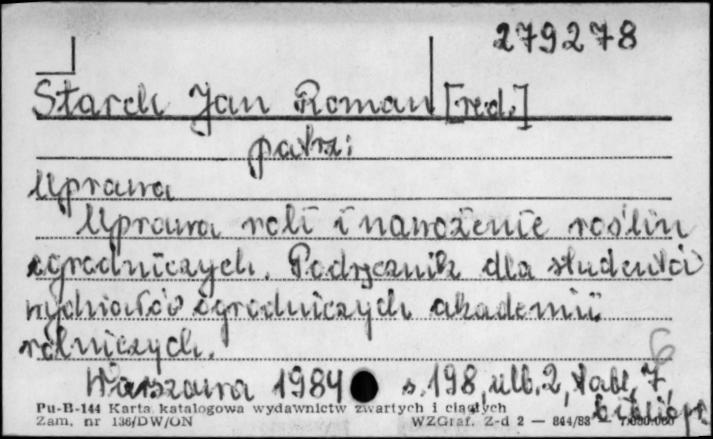 279278
Starck Jan Roman [red.]
patrz:
Uprawa
Uprawa roli i nawożenie roślin
ogrodniczych. Podręcznik dla studentów
wydziałów ogrodniczych akademii
rolniczych.
6
Warszawa 1984 s. 198, ulb. 2, tabl. 7,
bibliogr.
Pu-B-144 Karta katalogowa wydawnictw zwartych i ciągłych
Zam. nr 136/DW/ON WZGraf. Z-d 2 — 844/83 —